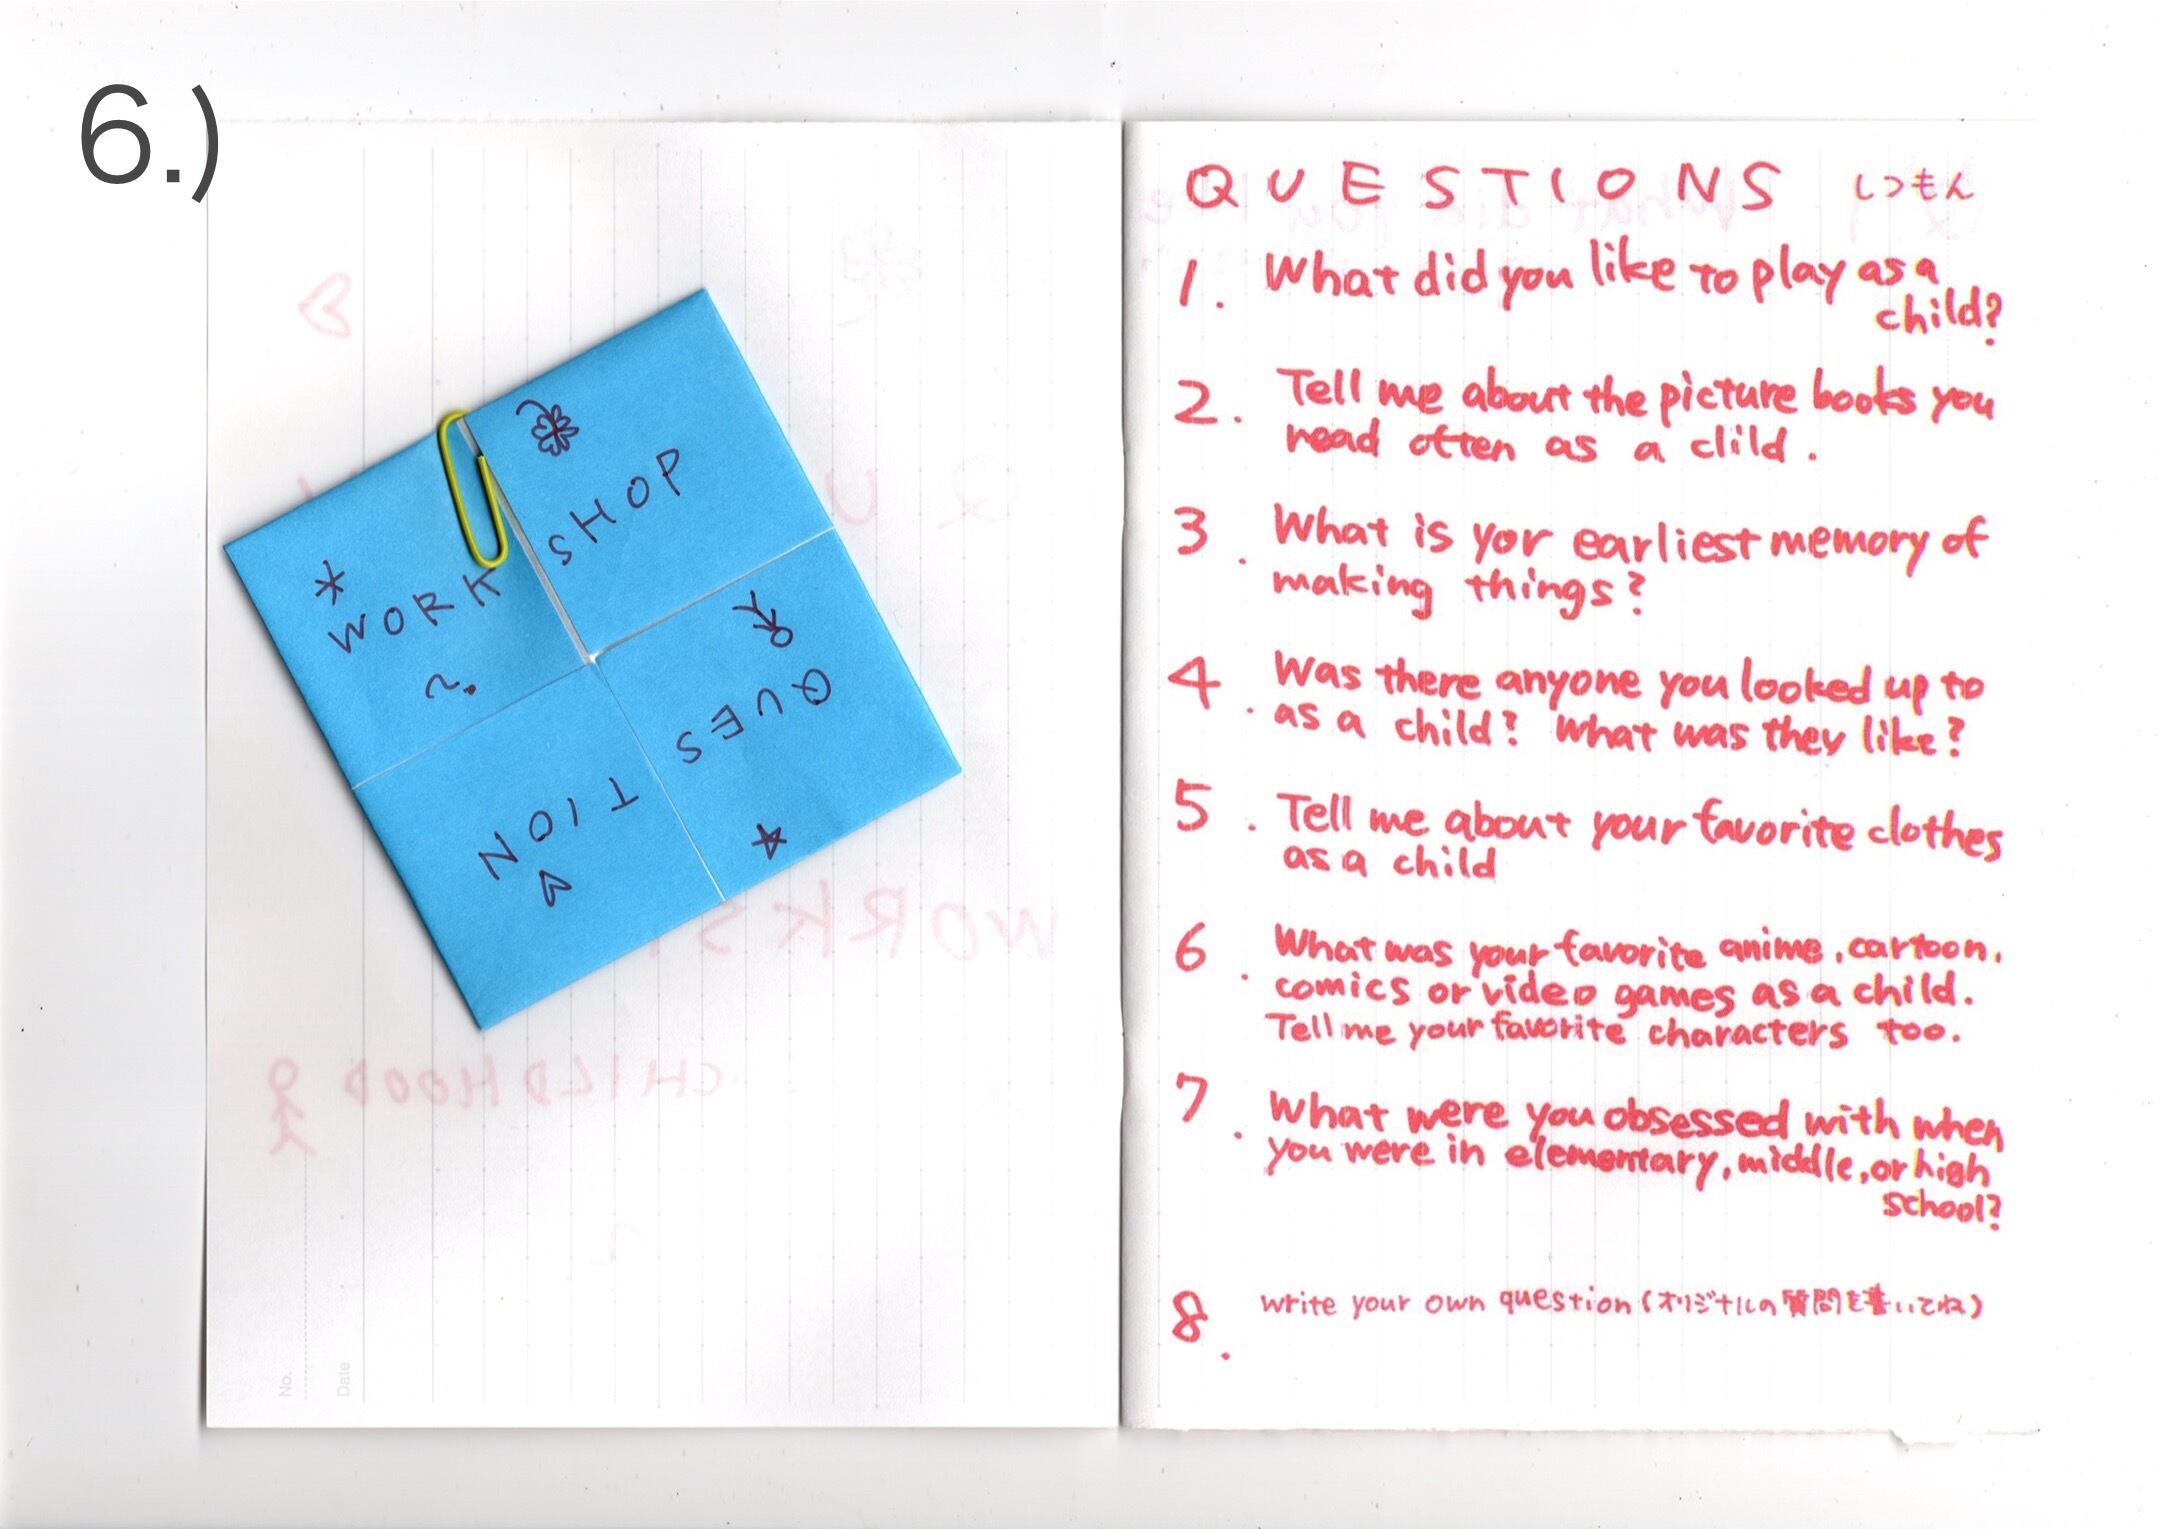 6.)
WORK
SHOP
QUES
TION
No.
Date
QUESTIONS しつもん
1. What did you like to play as a
child?
2. Tell me about the picture books you
read often as a clild.
3. What is yor earliest memory of
making things?
4. Was there anyone you looked up to
as a child? What was they like?
5. Tell me about your favorite clothes
as a child
6. What was your favorite anime, cartoon,
comics or video games as a child.
Tell me your favorite characters too.
7. What were you obsessed with when
you were in elementary, middle, or high
school?
8. write your own question (オリジナルの質問を書いてね)
WORKS
CHILDHOOD